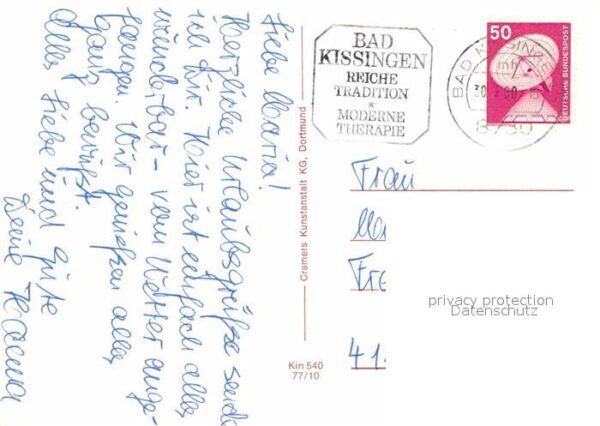 Liebe Maria!
Herzliche Urlaubsgrüße sende
ich Dir. Hier ist einfach alles
wunderbar - vom Wetter ange-
fangen. Wir genießen alles
ganz bewußt.
Alles Liebe und Gute
Deine
Cramers Kunstanstalt KG, Dortmund
Kin 540
77/10
BAD
KISSINGEN
REICHE
TRADITION
*
MODERNE
THERAPIE
50
DEUTSCHE BUNDESPOST
BAD KISSINGEN
8730
Frau
Fre
41
privacy protection
Datenschutz